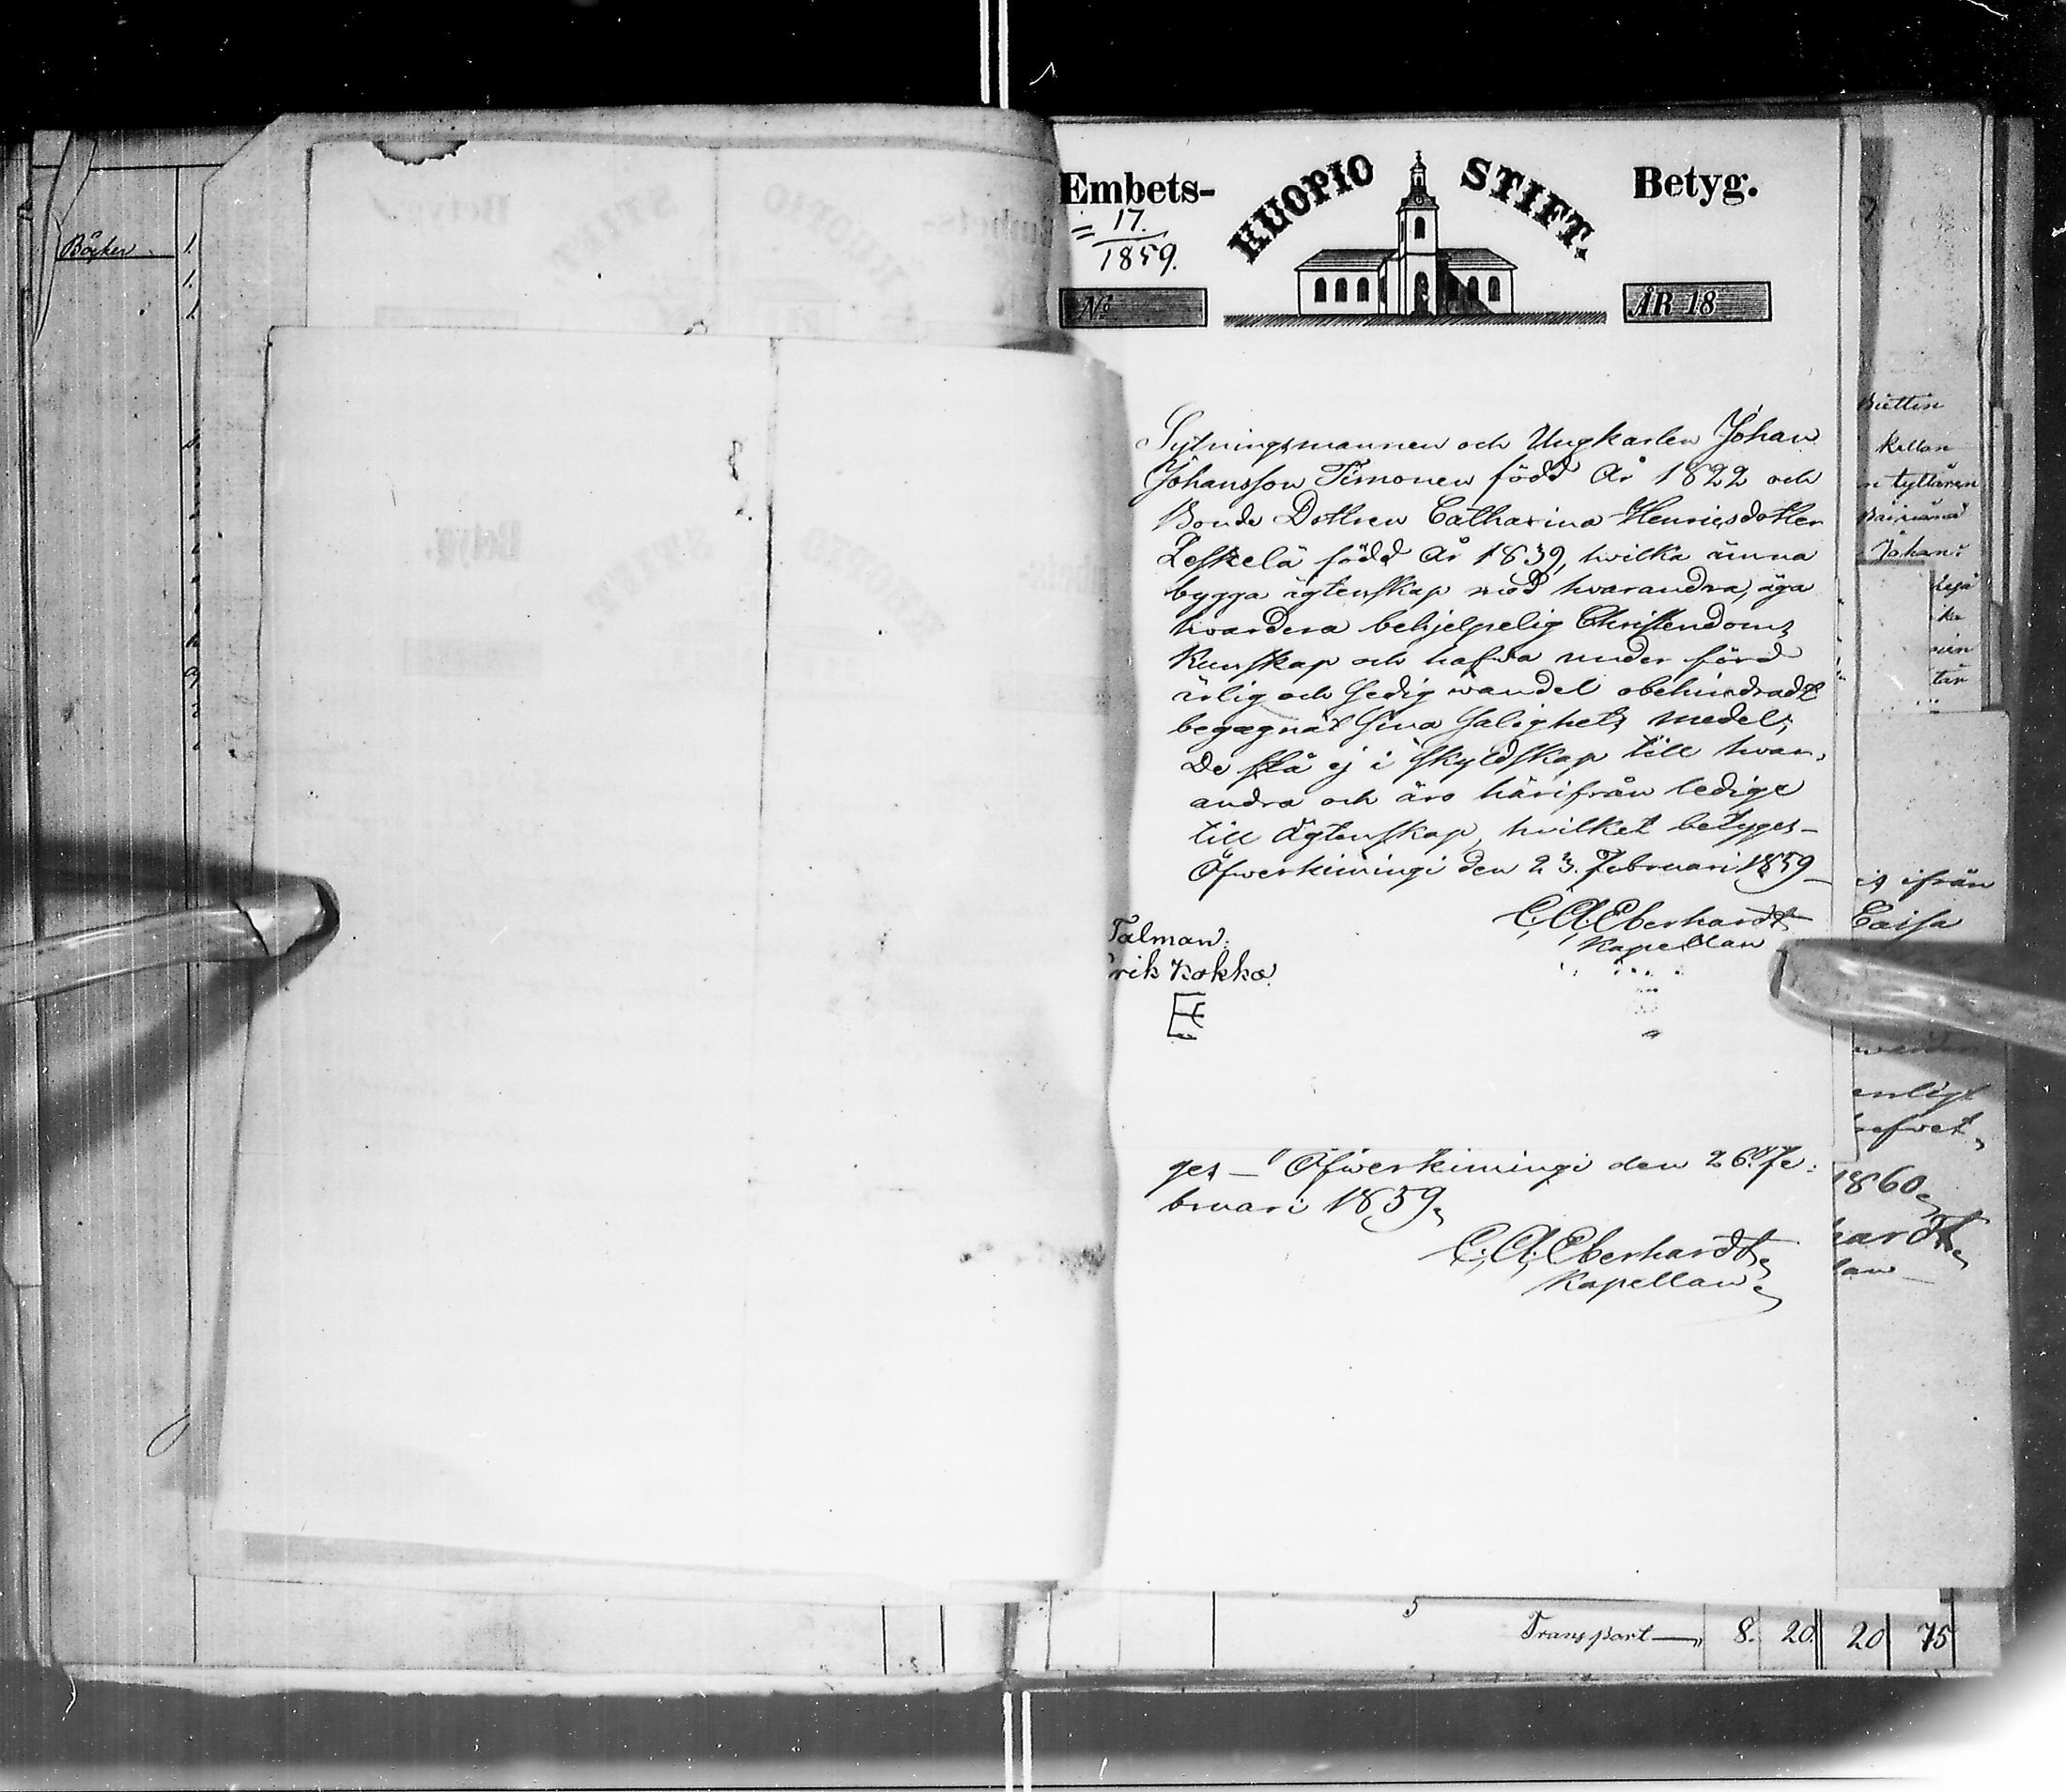 Böcker
1.
1.
1.
Embets-
KUOPIO STIFT.
Betyg.
17.
1859.
No
ÅR 18
Sytningsmannen och Ungkarlen Johan
Johansson Timonen född År 1822 och
Bonde Dottren Catharina Henricsdotter
Leskelä född År 1839, hvilka ämna
bygga ägtenskap med hvarandra, äga
hvardera behjelpelig Christendoms
Kunskap och hafva under förd
ärlig och sedig wandel obehindradt
begagnat sina salighets medel;
De stå ej i skyldskap till hvar-
andra och äro härifrån ledige
till ägtenskap, hvilket betyges-
Öfverkiminge den 23. Februari 1859
C. A. Eberhardt
Kapellan
Talman:
rik Kokko
ges — Öfverkiminge den 26. Fe:
bruari 1859
C. A. Eberhardt
Kapellan
kellan
tyttären
Johan:
tär
ifrån
Caisa
enligt
1860
hardt
lan
Transport — 8. 20. 20 75